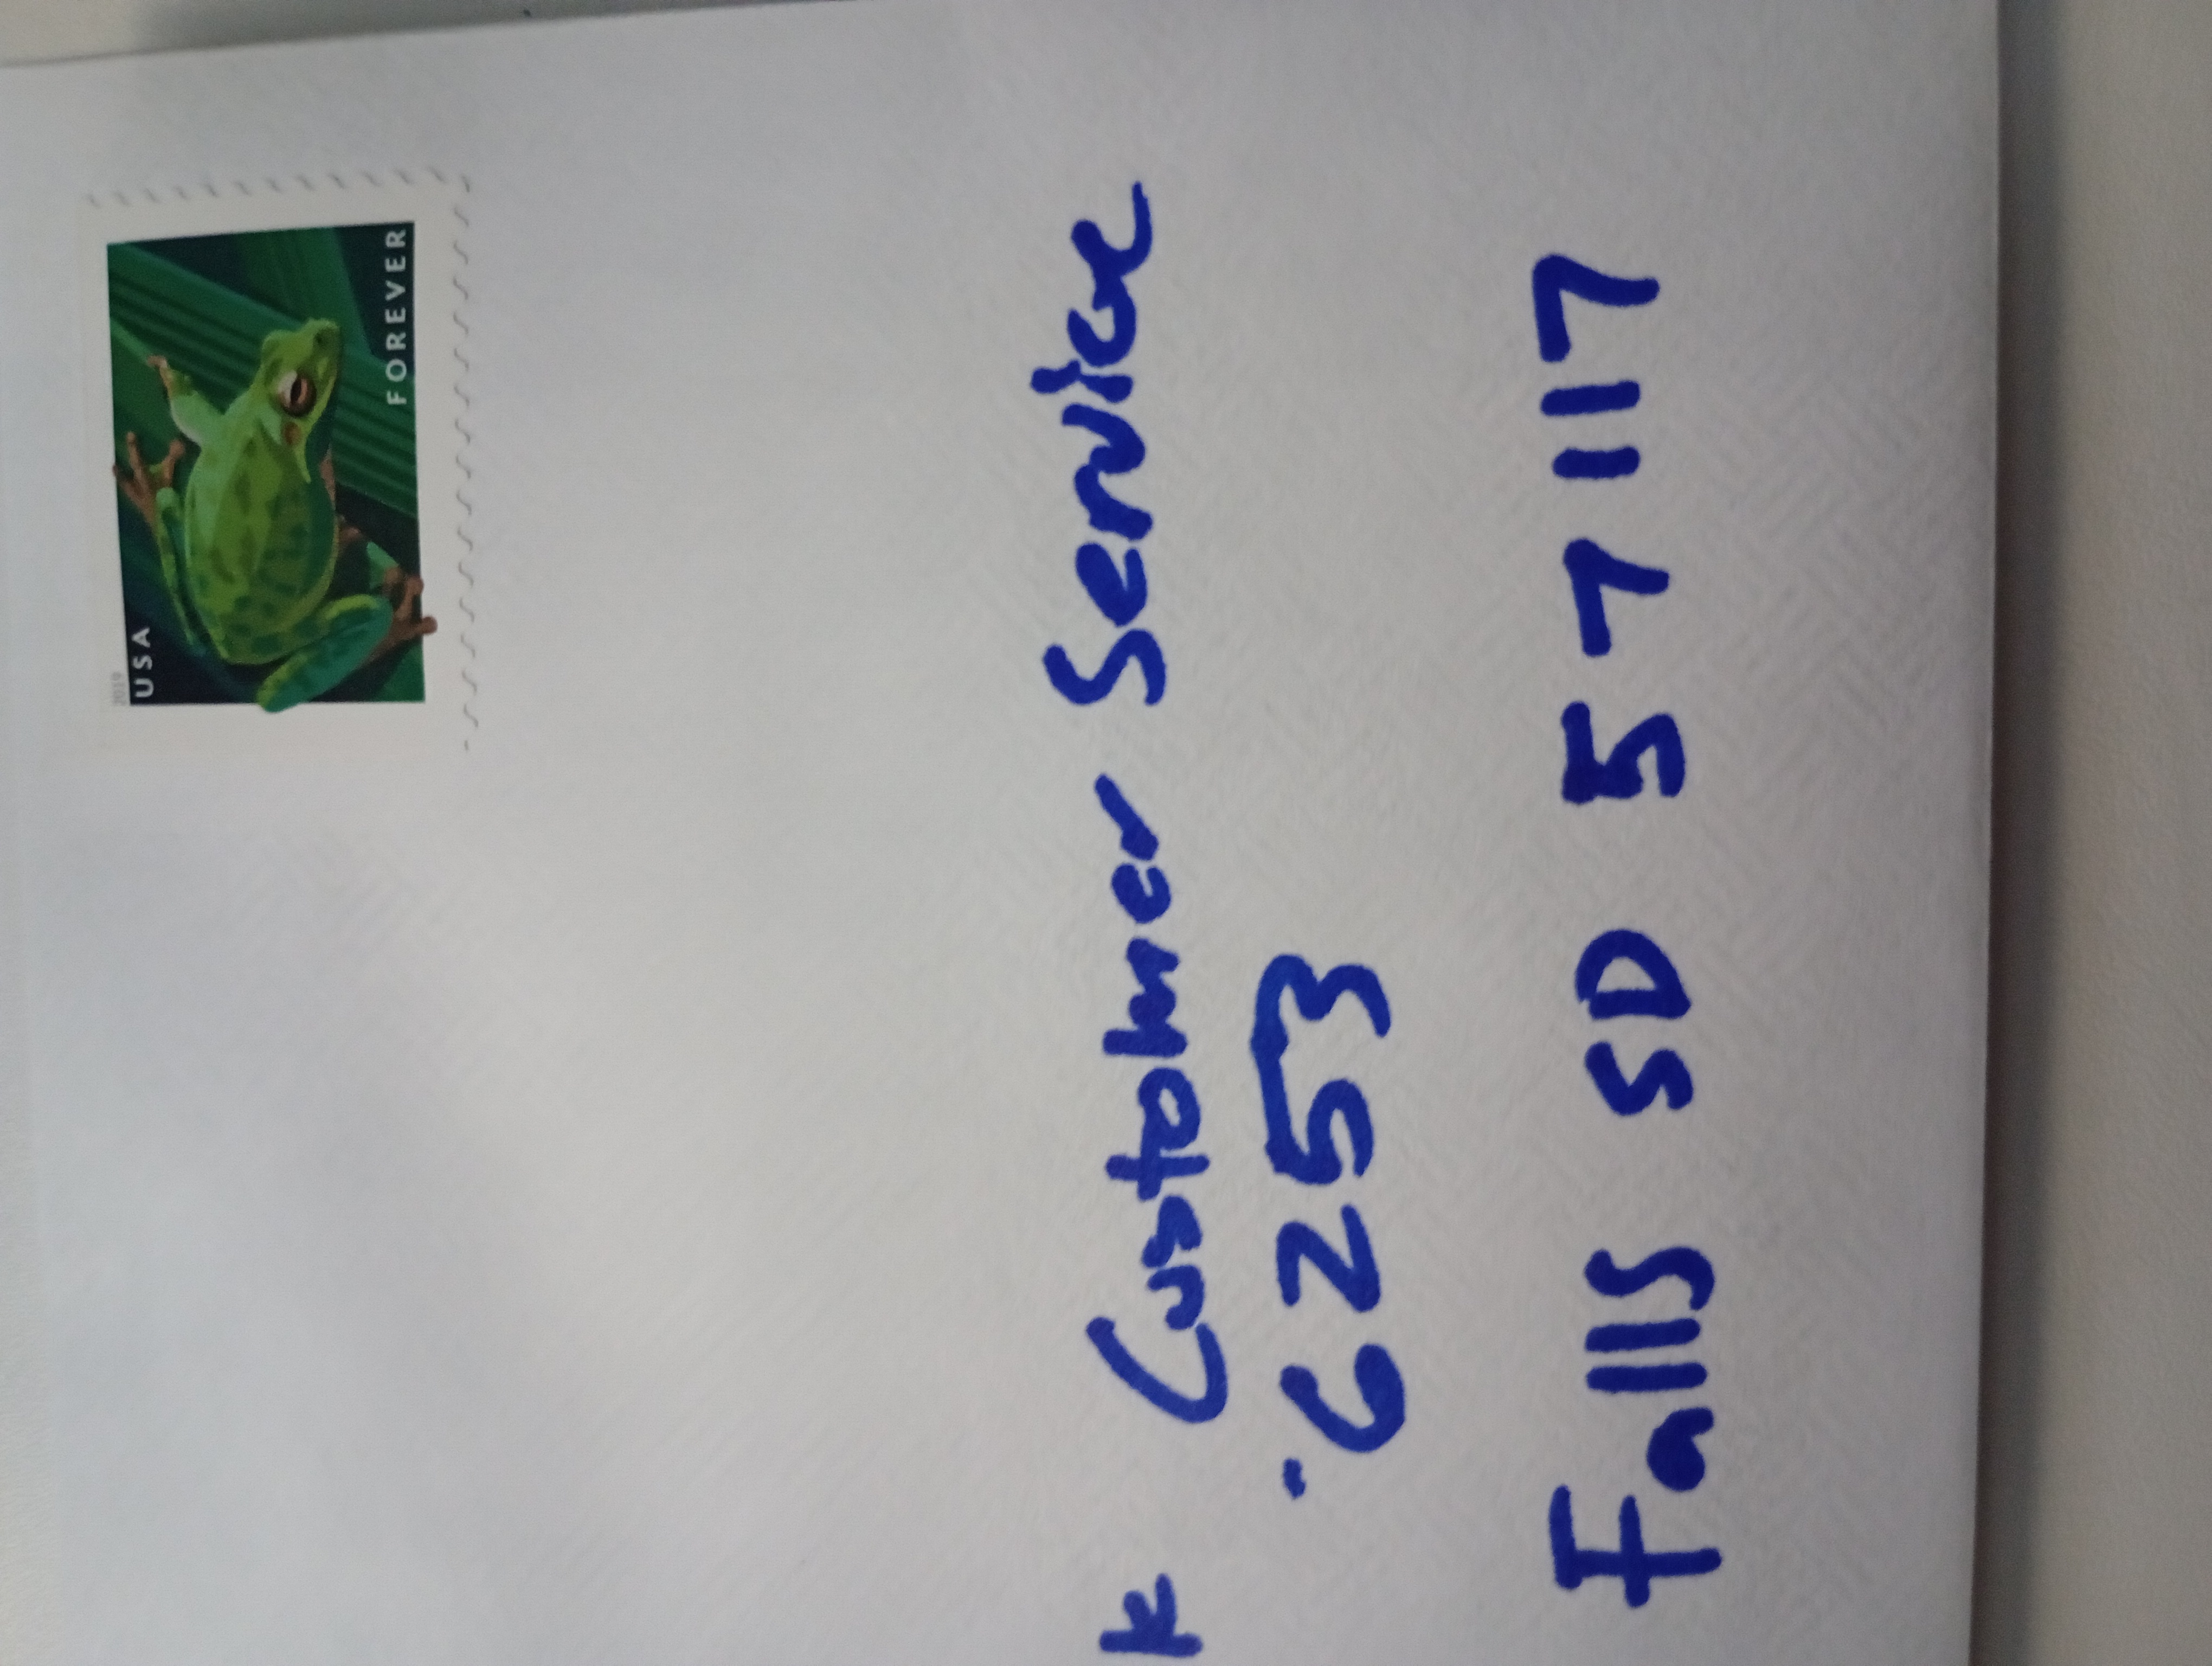 2019
USA
FOREVER
k Customer Service
6253
Falls SD 57117